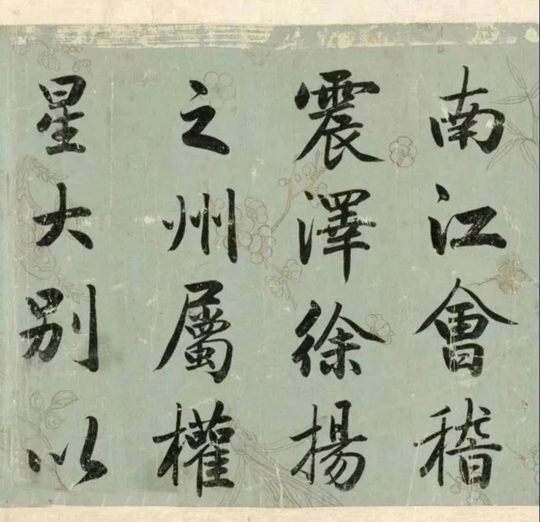 南江會稽
震澤徐揚
之州屬權
星大别以